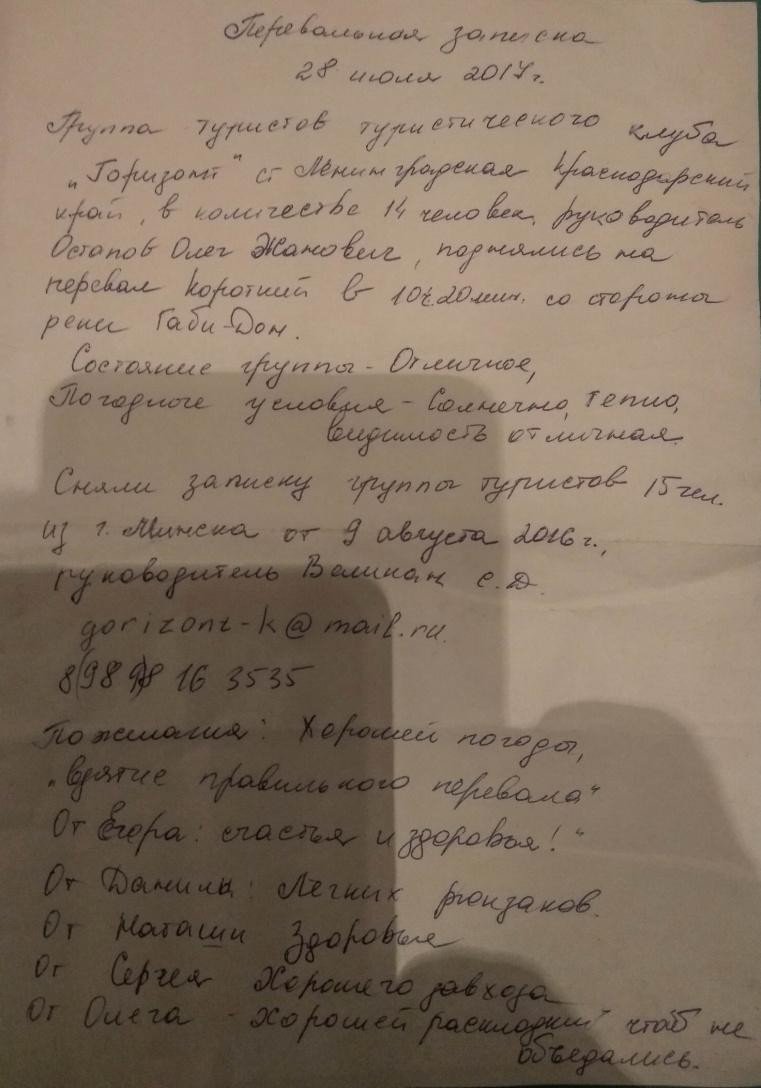 Перевальная записка
28 июля 2017г.
Группа туристов туристического клуба
„Горизонт" ст Ленинградская Краснодарский
край, в количестве 14 человек, руководитель
Остапов Олег Жанович, поднялись на
перевал Короткий в 10ч.20мин. со стороны
реки Габи-Дон.
Состояние группы - Отличное,
Погодные условия - Солнечно, тепло,
видимость отличная.
Сняли записку группы туристов 15 чел.
из г. Минска от 9 августа 2016г.,
руководитель Великан С.Д.
gorizont-k@mail.ru.
8(989)8 16 3535
Пожелания: Хорошей погоды,
„взятие правильного перевала"
От Егора: счастья и здоровья!"
От Данилы: Легких рюкзаков.
От Наташи Здоровья
От Сергея Хорошего завхоза
От Олега - Хорошей раскладки чтоб не
объедались.